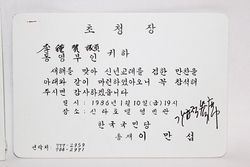 초 청 장
李 鍾 贊 議員
동영부인 귀하
새해를 맞아 신년교례를 겸한 만찬을
아래와 같이 마련하였아오니 꼭 참석해
주시면 감사하겠읍니다
일 시 : 1986년 1월 10일 (금) 19시
장 소 : 신라호텔 영빈관
한 국 국 민 당
총재 이 만 섭
연락처 :